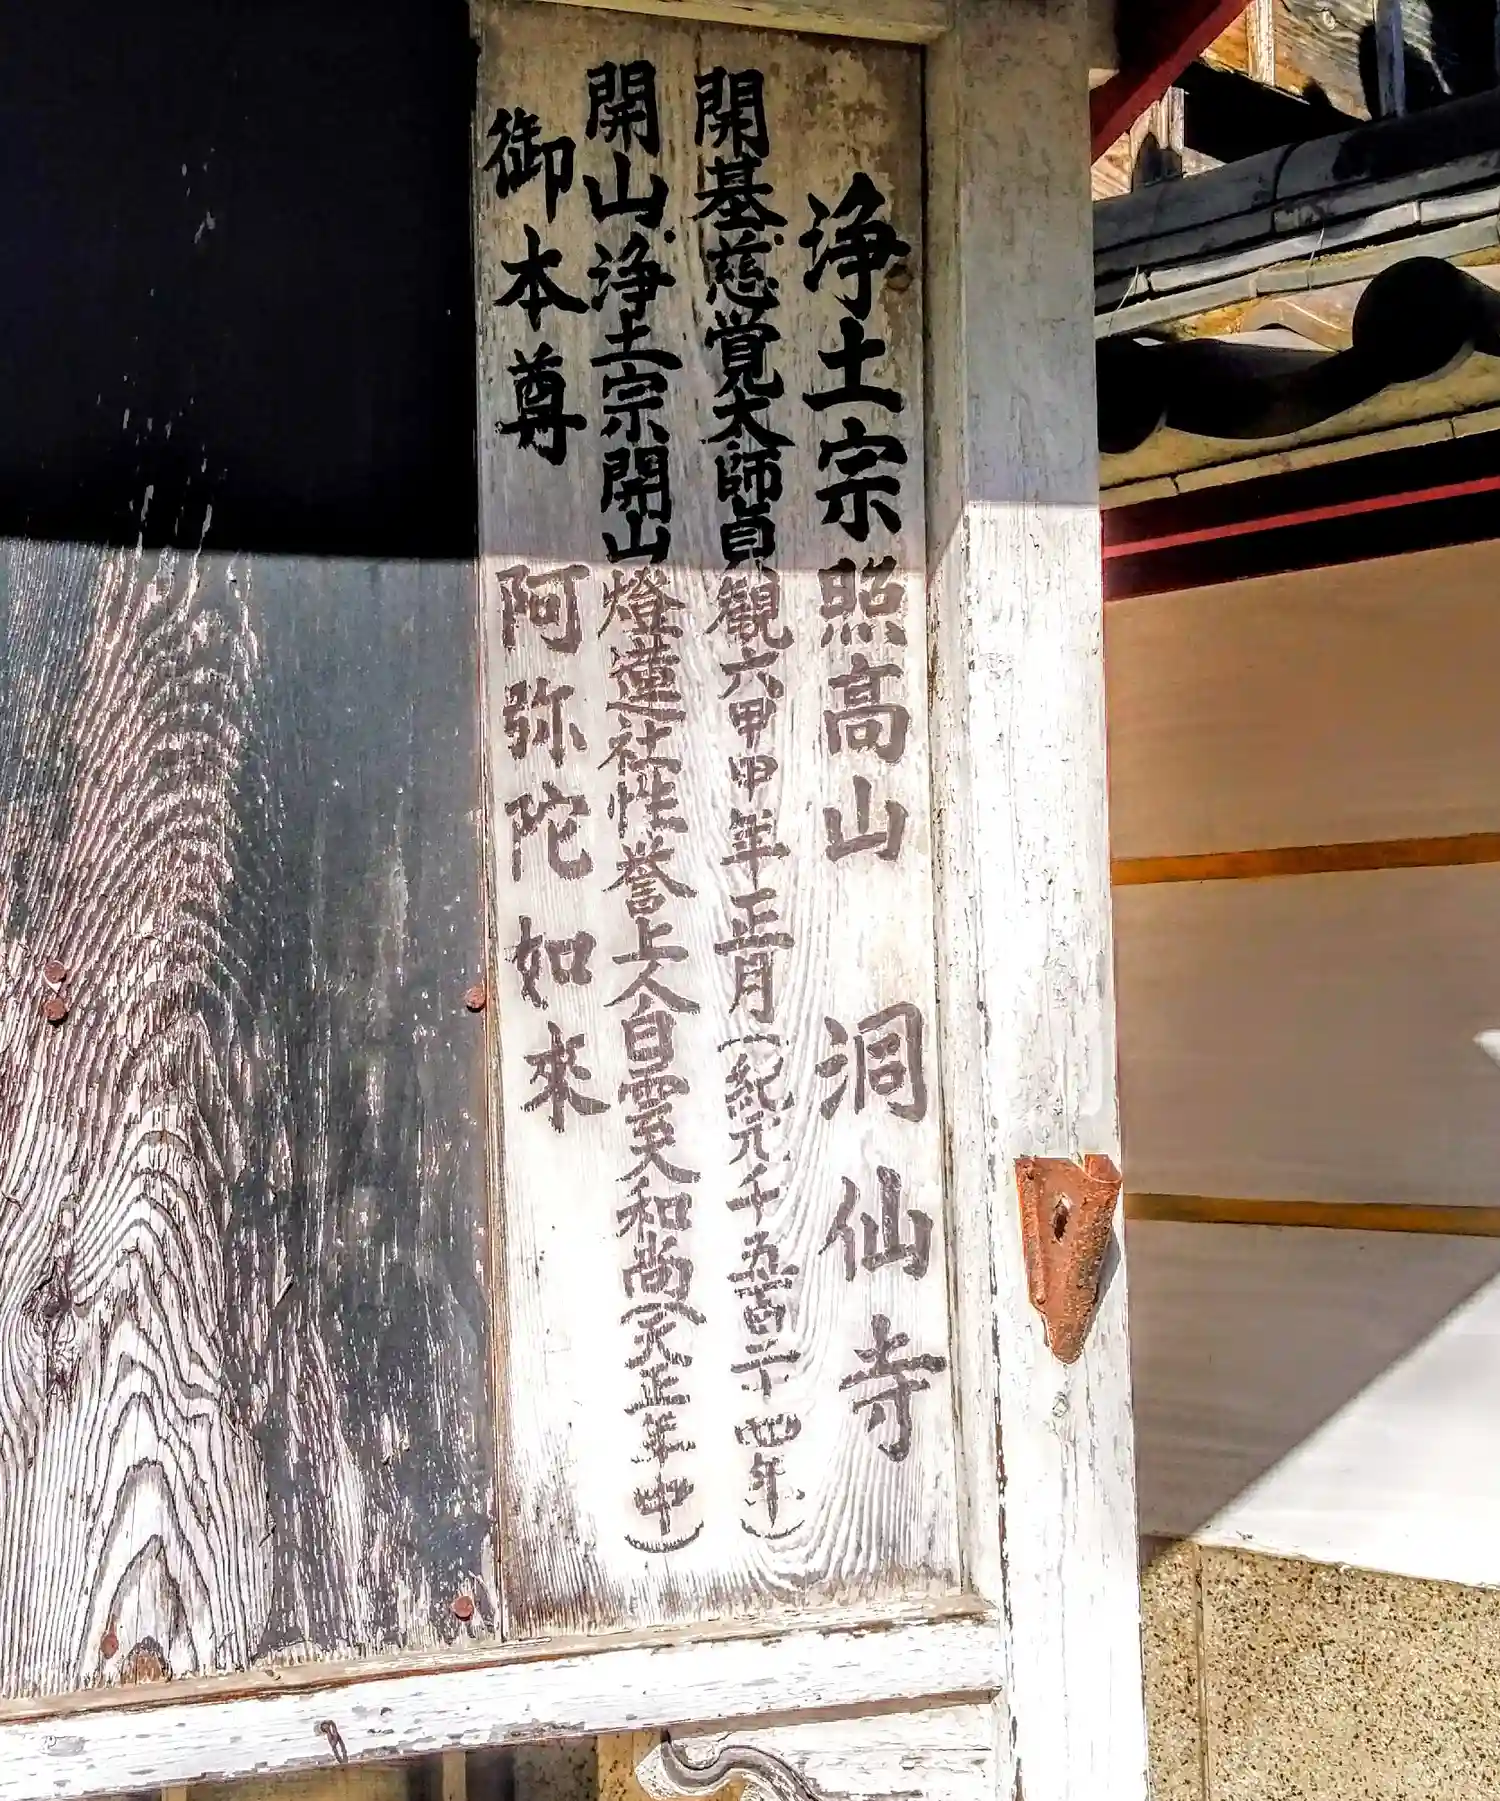 浄土宗照高山 洞仙寺
開基慈覚大師貞観六甲申年正月(紀元千五百二十四年)
開山浄土宗開山燈蓮社性誉上人白雲天和尚(天正年中)
御本尊 阿弥陀如来